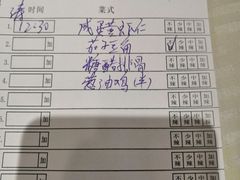 请 时间 菜式
1. 12:30 咸蛋黄虾仁 不辣 少辣 中辣 加辣
2. 加 茄子豆角 不辣 少辣 中辣 加辣
3. 加 糖醋排骨 不辣 少辣 中辣 加辣
4. 加 葱油鸡(半) 不辣 少辣 中辣 加辣
5. 加 不辣 少辣 中辣 加辣
6. 加 不辣 少辣 中辣 加辣
7. 加 不辣 少辣 中辣 加辣